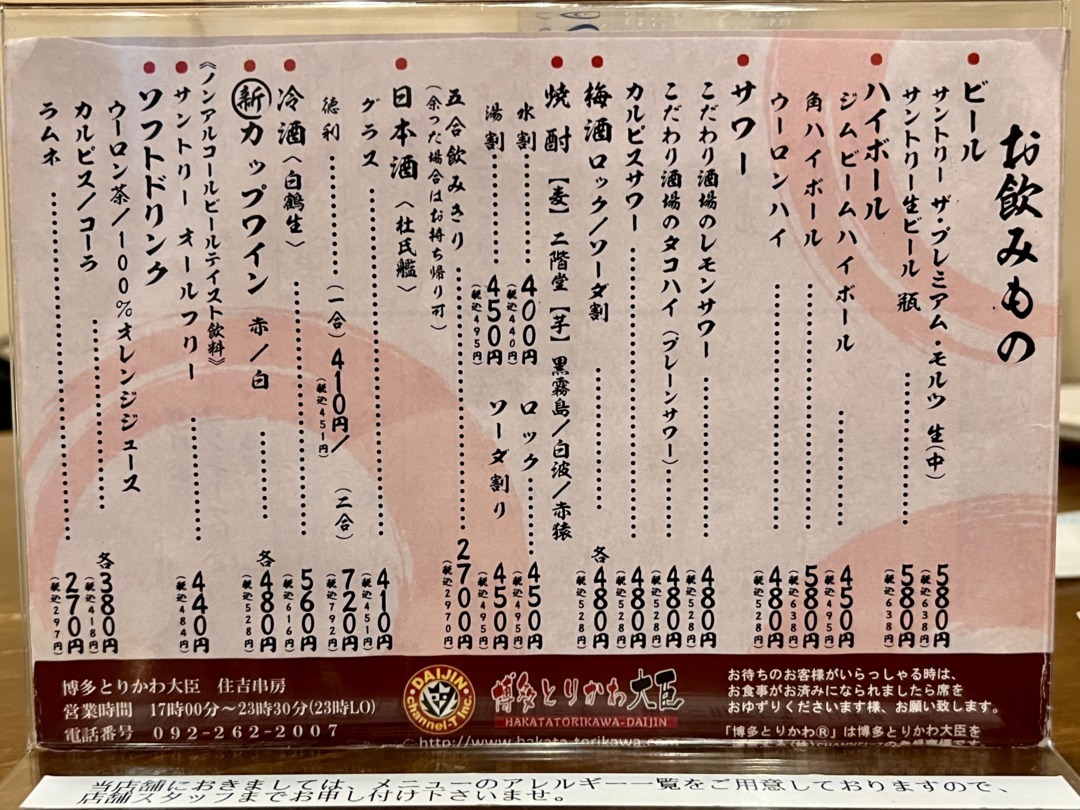 お飲みもの
ビール
サントリー ザ・プレミアム・モルツ 生(中) 580円
(税込638円)
サントリー生ビール 瓶 580円
(税込638円)
ハイボール
ジムビームハイボール 450円
(税込495円)
角ハイボール 580円
(税込638円)
ウーロンハイ 480円
(税込528円)
サワー
こだわり酒場のレモンサワー 480円
(税込528円)
こだわり酒場のタコハイ(プレーンサワー) 480円
(税込528円)
カルピスサワー 480円
(税込528円)
梅酒ロック/ソーダ割 各480円
(税込528円)
焼酎 【麦】二階堂 【芋】黒霧島/白波/赤猿
水割 400円 ロック 450円
(税込440円) (税込495円)
湯割 450円 ソーダ割り 450円
(税込495円) (税込495円)
五合飲みきり 2700円
(余った場合はお持ち帰り可) (税込2970円)
日本酒〈杜氏艦〉
グラス 410円
(税込451円)
徳利 (一合) 410円/ (二合) 720円
(税込451円) (税込792円)
冷酒〈白鶴生〉 560円
(税込616円)
新カップワイン 赤/白 各480円
(税込528円)
《ノンアルコールビールテイスト飲料》
サントリー オールフリー 440円
(税込484円)
ソフトドリンク
ウーロン茶/100%オレンジジュース
カルピス/コーラ 各380円
(税込418円)
ラムネ 270円
(税込297円)
博多とりかわ大臣 住吉串房
営業時間 17時00分〜23時30分(23時LO)
電話番号 092-262-2007
DAIJIN
Channel-T Inc.
博多とりかわ大臣
HAKATATORIKAWA-DAIJIN
http://www.hakata-torikawa.com
お待ちのお客様がいらっしゃる時は、
お食事がお済みになられましたら席を
おゆずりくださいます様、お願い致します。
「博多とりかわ®」は博多とりかわ大臣を
当店舗におきましては、メニューのアレルギー一覧をご用意しておりますので、
店舗スタッフまでお申し付け下さいませ。